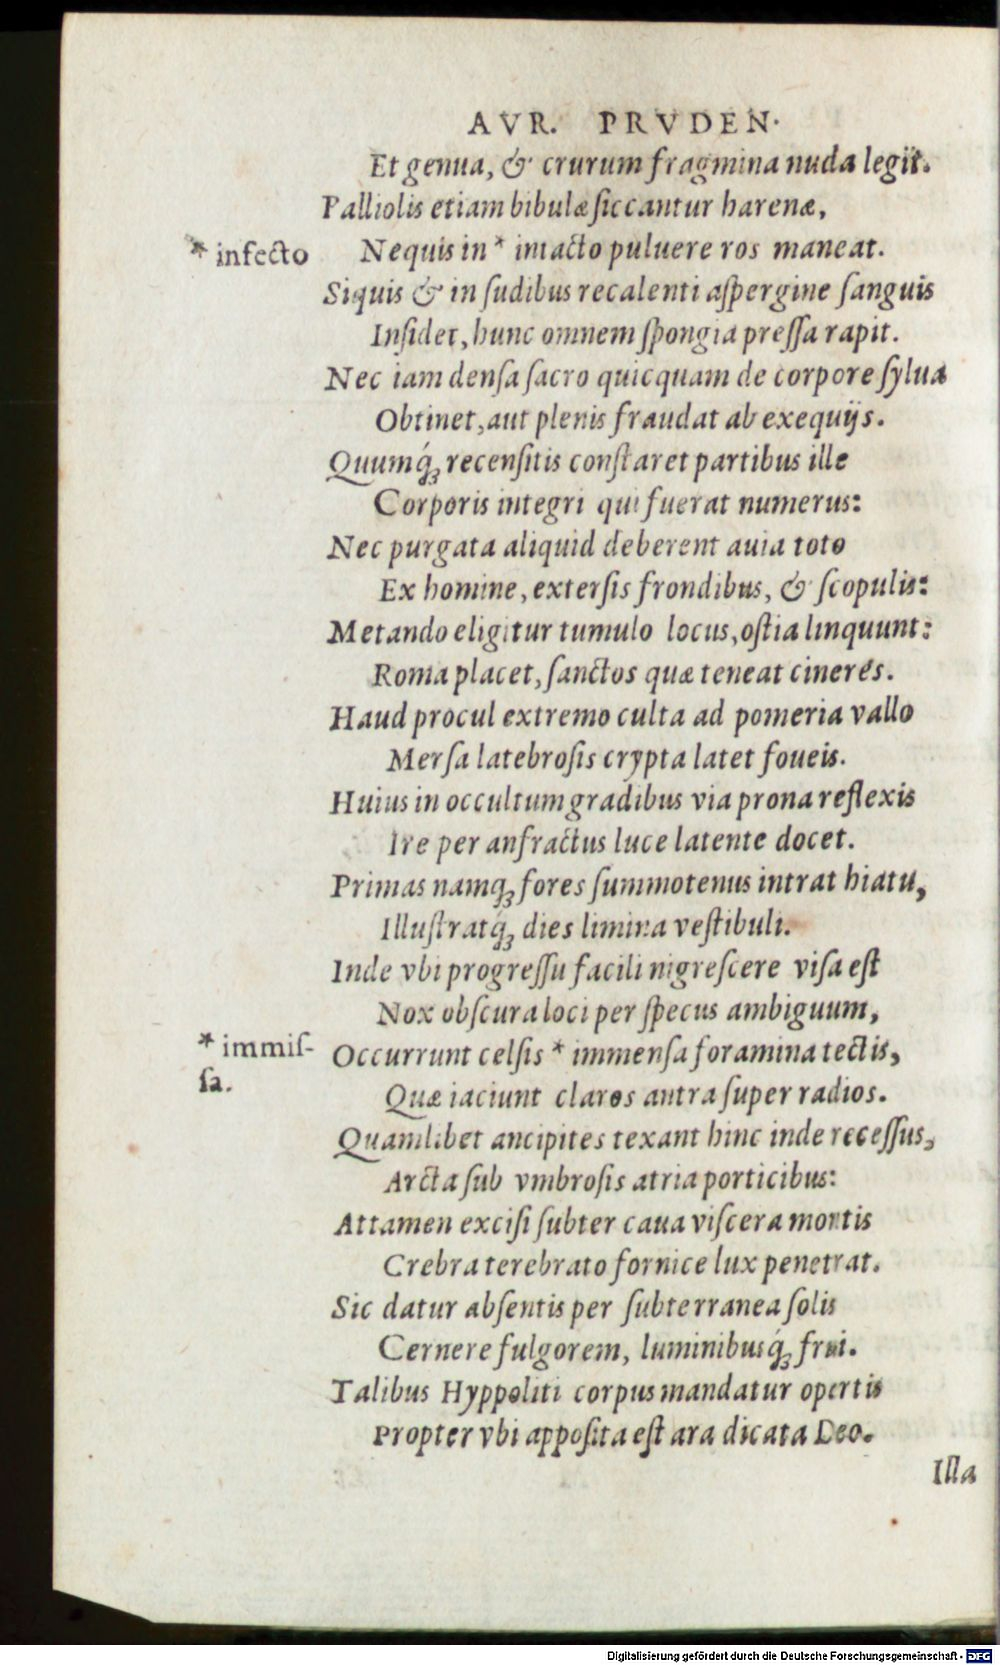 AVR. PRVDEN.
Et genua, & crurum fragmina nuda legit.
Palliolis etiam bibulæ ſiccantur harenæ,
* infecto
Nequis in * intacto puluere ros maneat.
Siquis & in ſudibus recalenti aſpergine ſanguis
Inſidet, hunc omnem ſpongia preſſa rapit.
Nec iam denſa ſacro quicquam de corpore ſylua
Obtinet, aut plenis fraudat ab exequijs.
Quumq́ꝫ recenſitis conſtaret partibus ille
Corporis integri qui fuerat numerus:
Nec purgata aliquid deberent auia toto
Ex homine, exterſis frondibus, & ſcopulis:
Metando eligitur tumulo locus, oſtia linquunt:
Roma placet, ſanctos quæ teneat cineres.
Haud procul extremo culta ad pomeria vallo
Merſa latebroſis crypta latet foueis.
Huius in occultum gradibus via prona reflexis
Ire per anfractus luce latente docet.
Primas namqꝫ fores ſummotenus intrat hiatu,
Illuſtratq́ꝫ dies limina veſtibuli.
Inde vbi progreſſu facili nigreſcere viſa eſt
Nox obſcura loci per ſpecus ambiguum,
* immiſ-
ſa.
Occurrunt celſis * immenſa foramina tectis,
Quæ iaciunt claros antra ſuper radios.
Quamlibet ancipites texant hinc inde receſſus,
Arcta ſub vmbroſis atria porticibus:
Attamen exciſi ſubter caua viſcera mortis
Crebra terebrato fornice lux penetrat.
Sic datur abſentis per ſubterranea ſolis
Cernere fulgorem, luminibusq́ꝫ frui.
Talibus Hyppoliti corpus mandatur opertis
Propter vbi appoſita eſt ara dicata Deo.
Illa
Digitalisierung gefördert durch die Deutsche Forschungsgemeinschaft - DFG